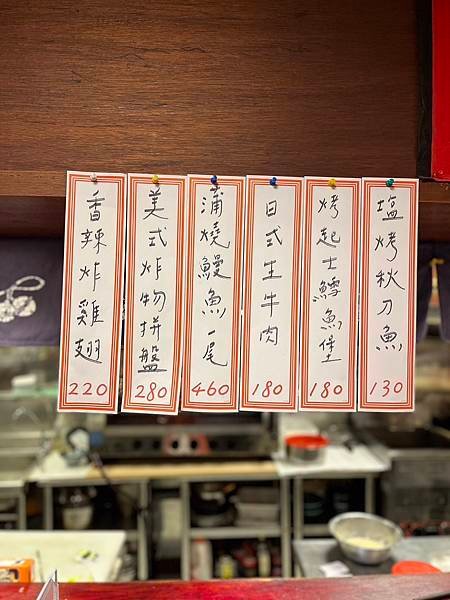 塩烤秋刀魚
130
烤起士鱈魚堡
180
日式生牛肉
180
蒲燒鰻魚一尾
460
美式炸物拼盤
280
香辣炸雞翅
220